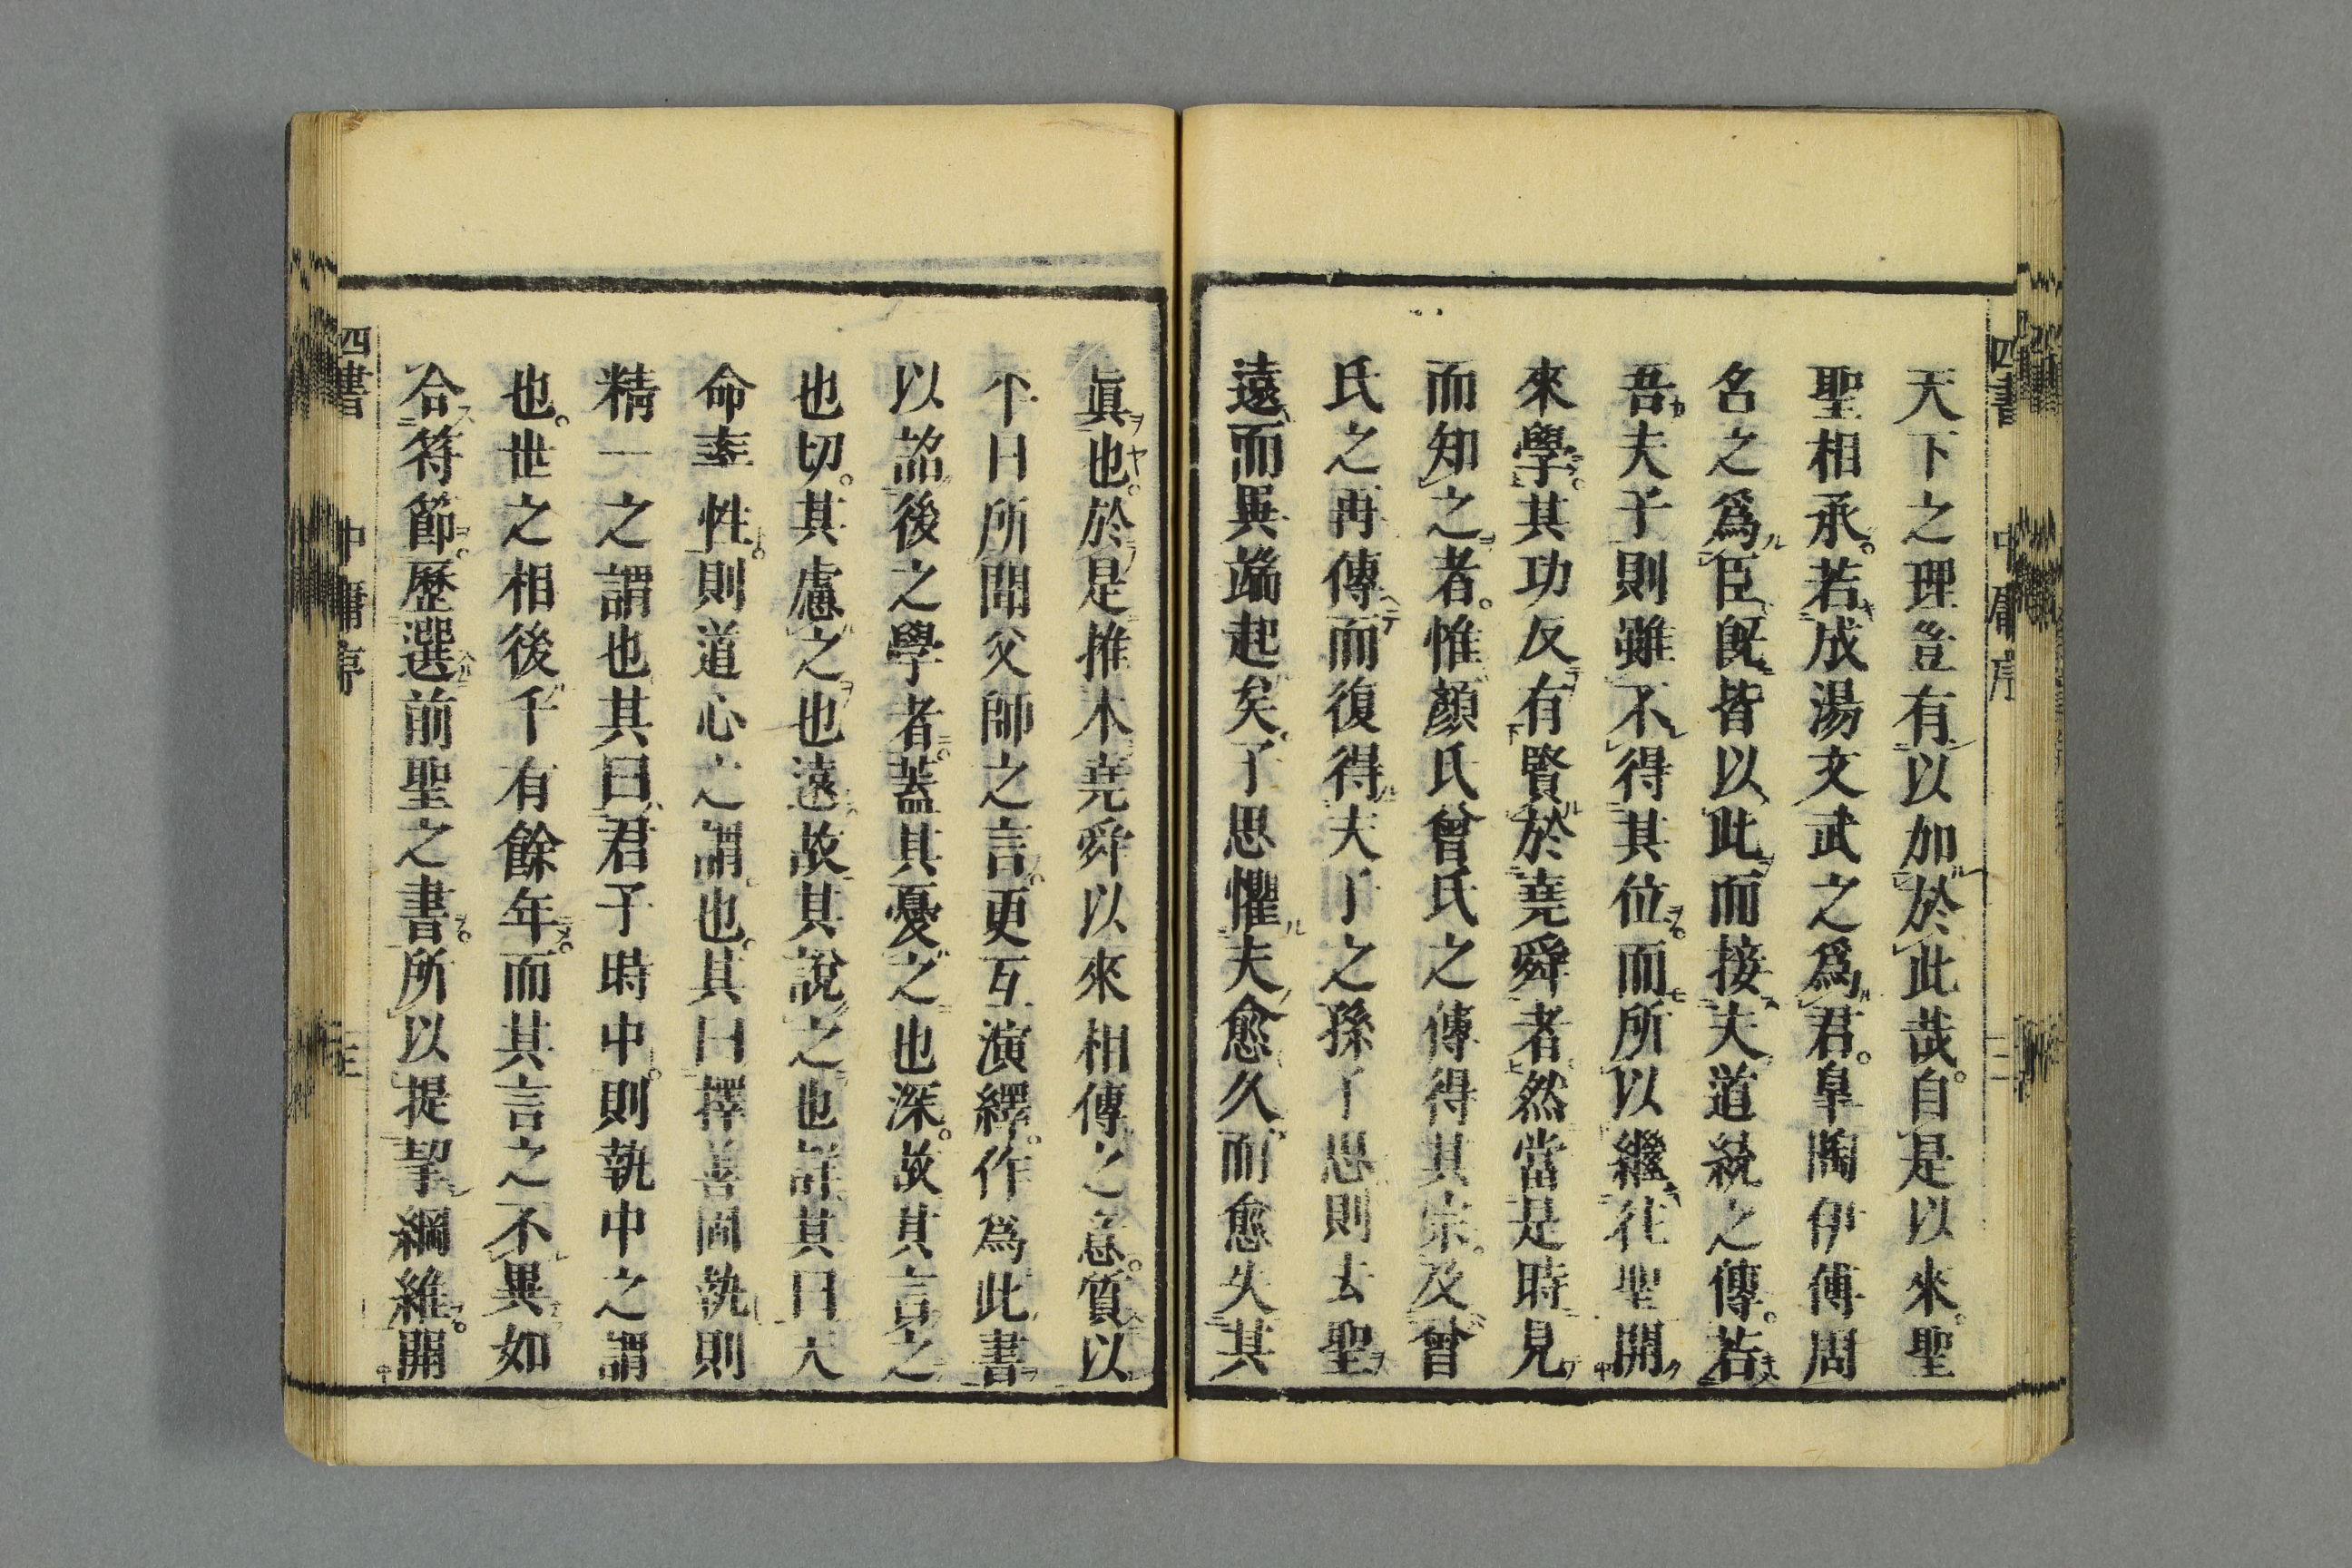 四書 中庸序 二
天下之理豈有以加於此哉。自是以來。聖
聖相承。若成湯文武之爲君。皐陶伊傅周
名之爲臣。既皆以此而接夫道統之傳。若
吾夫子則雖不得其位。而所以繼徃聖開
來學。其功反有賢於堯舜者。然當是時見
而知之者。惟顏氏曾氏之傳得其宗。及曾
氏之再傳而復得夫子之孫子思則去聖
遠而異端起矣。子思懼夫愈久而愈失其
眞也。於是推本堯舜以來相傳之意。質以
平日所聞父師之言。更互演繹。作爲此書
以詔後之學者。蓋其憂之也深。故其言之
也切。其慮之也遠。故其說之也詳其曰天
命率性。則道心之謂也。其曰擇善固執則
精一之謂也其曰君子時中。則執中之謂
也。世之相後千有餘年。而其言之不異如
合符節。歷選前聖之書。所以提挈綱維。開
四書 中庸序 三